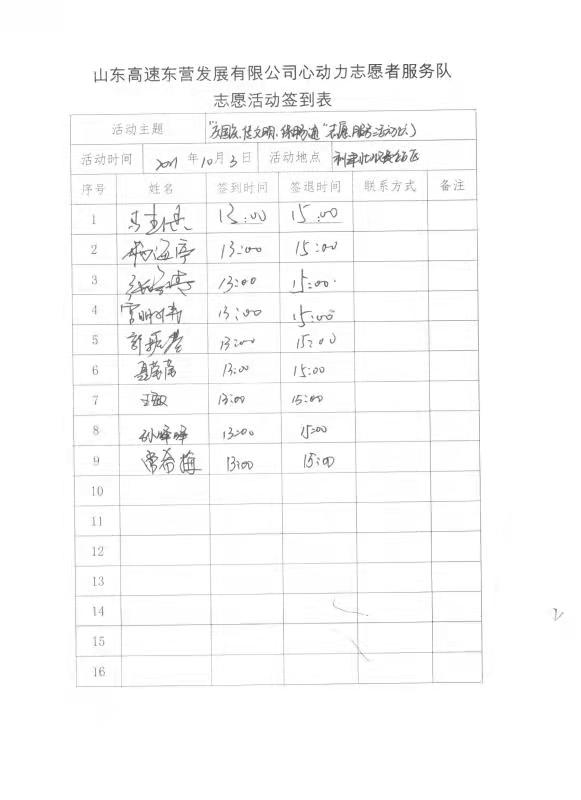 山东高速东营发展有限公司心动力志愿者服务队
志愿活动签到表
活动主题 "迎国庆 促文明 保畅通"志愿服务活动
活动时间 2021年10月3日 活动地点
序号 姓名 签到时间 签退时间 联系方式 备注
1 13:00 15:00
2 13:00 15:00
3 13:00 15:00
4 13:00 15:00
5 13:00 15:00
6 聂荣荣 13:00 15:00
7 王敏 13:00 15:00
8 孙晔晔 13:00 15:00
9 常希梅 13:00 15:00
10
11
12
13
14
15
16